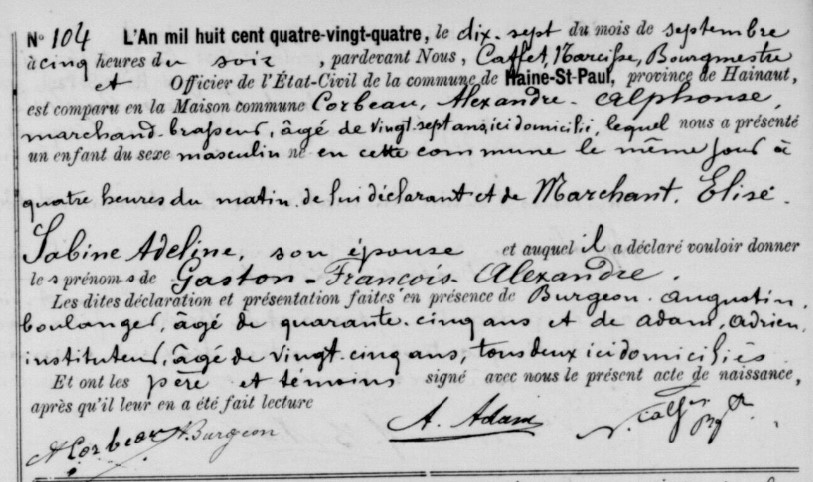 N° 104 L'An mil huit cent quatre-vingt-quatre, le dix-sept du mois de septembre
à cinq heures du soir, pardevant Nous, Caffet, Narcisse, Bourgmestre
et Officier de l'État-Civil de la commune de Haine-St-Paul, province de Hainaut,
est comparu en la Maison commune Corbeau, Alexandre-Alphonse,
marchand-brasseur, âgé de vingt-sept ans, ici domicilié, lequel nous a présenté
un enfant du sexe masculin né en cette commune le même jour à
quatre heures du matin de lui déclarant et de Marchant, Elise-
Sabine Adeline, son épouse et auquel il a déclaré vouloir donner
les prénoms de Gaston-François-Alexandre.
Les dites déclaration et présentation faites en présence de Burgeon, Augustin,
boulanger, âgé de quarante-cinq ans et de Adam, Adrien,
instituteur, âgé de vingt-cinq ans, tous deux ici domiciliés
Et ont les père et témoins signé avec nous le présent acte de naissance,
après qu'il leur en a été fait lecture
A Corbeau A. Burgeon A. Adam